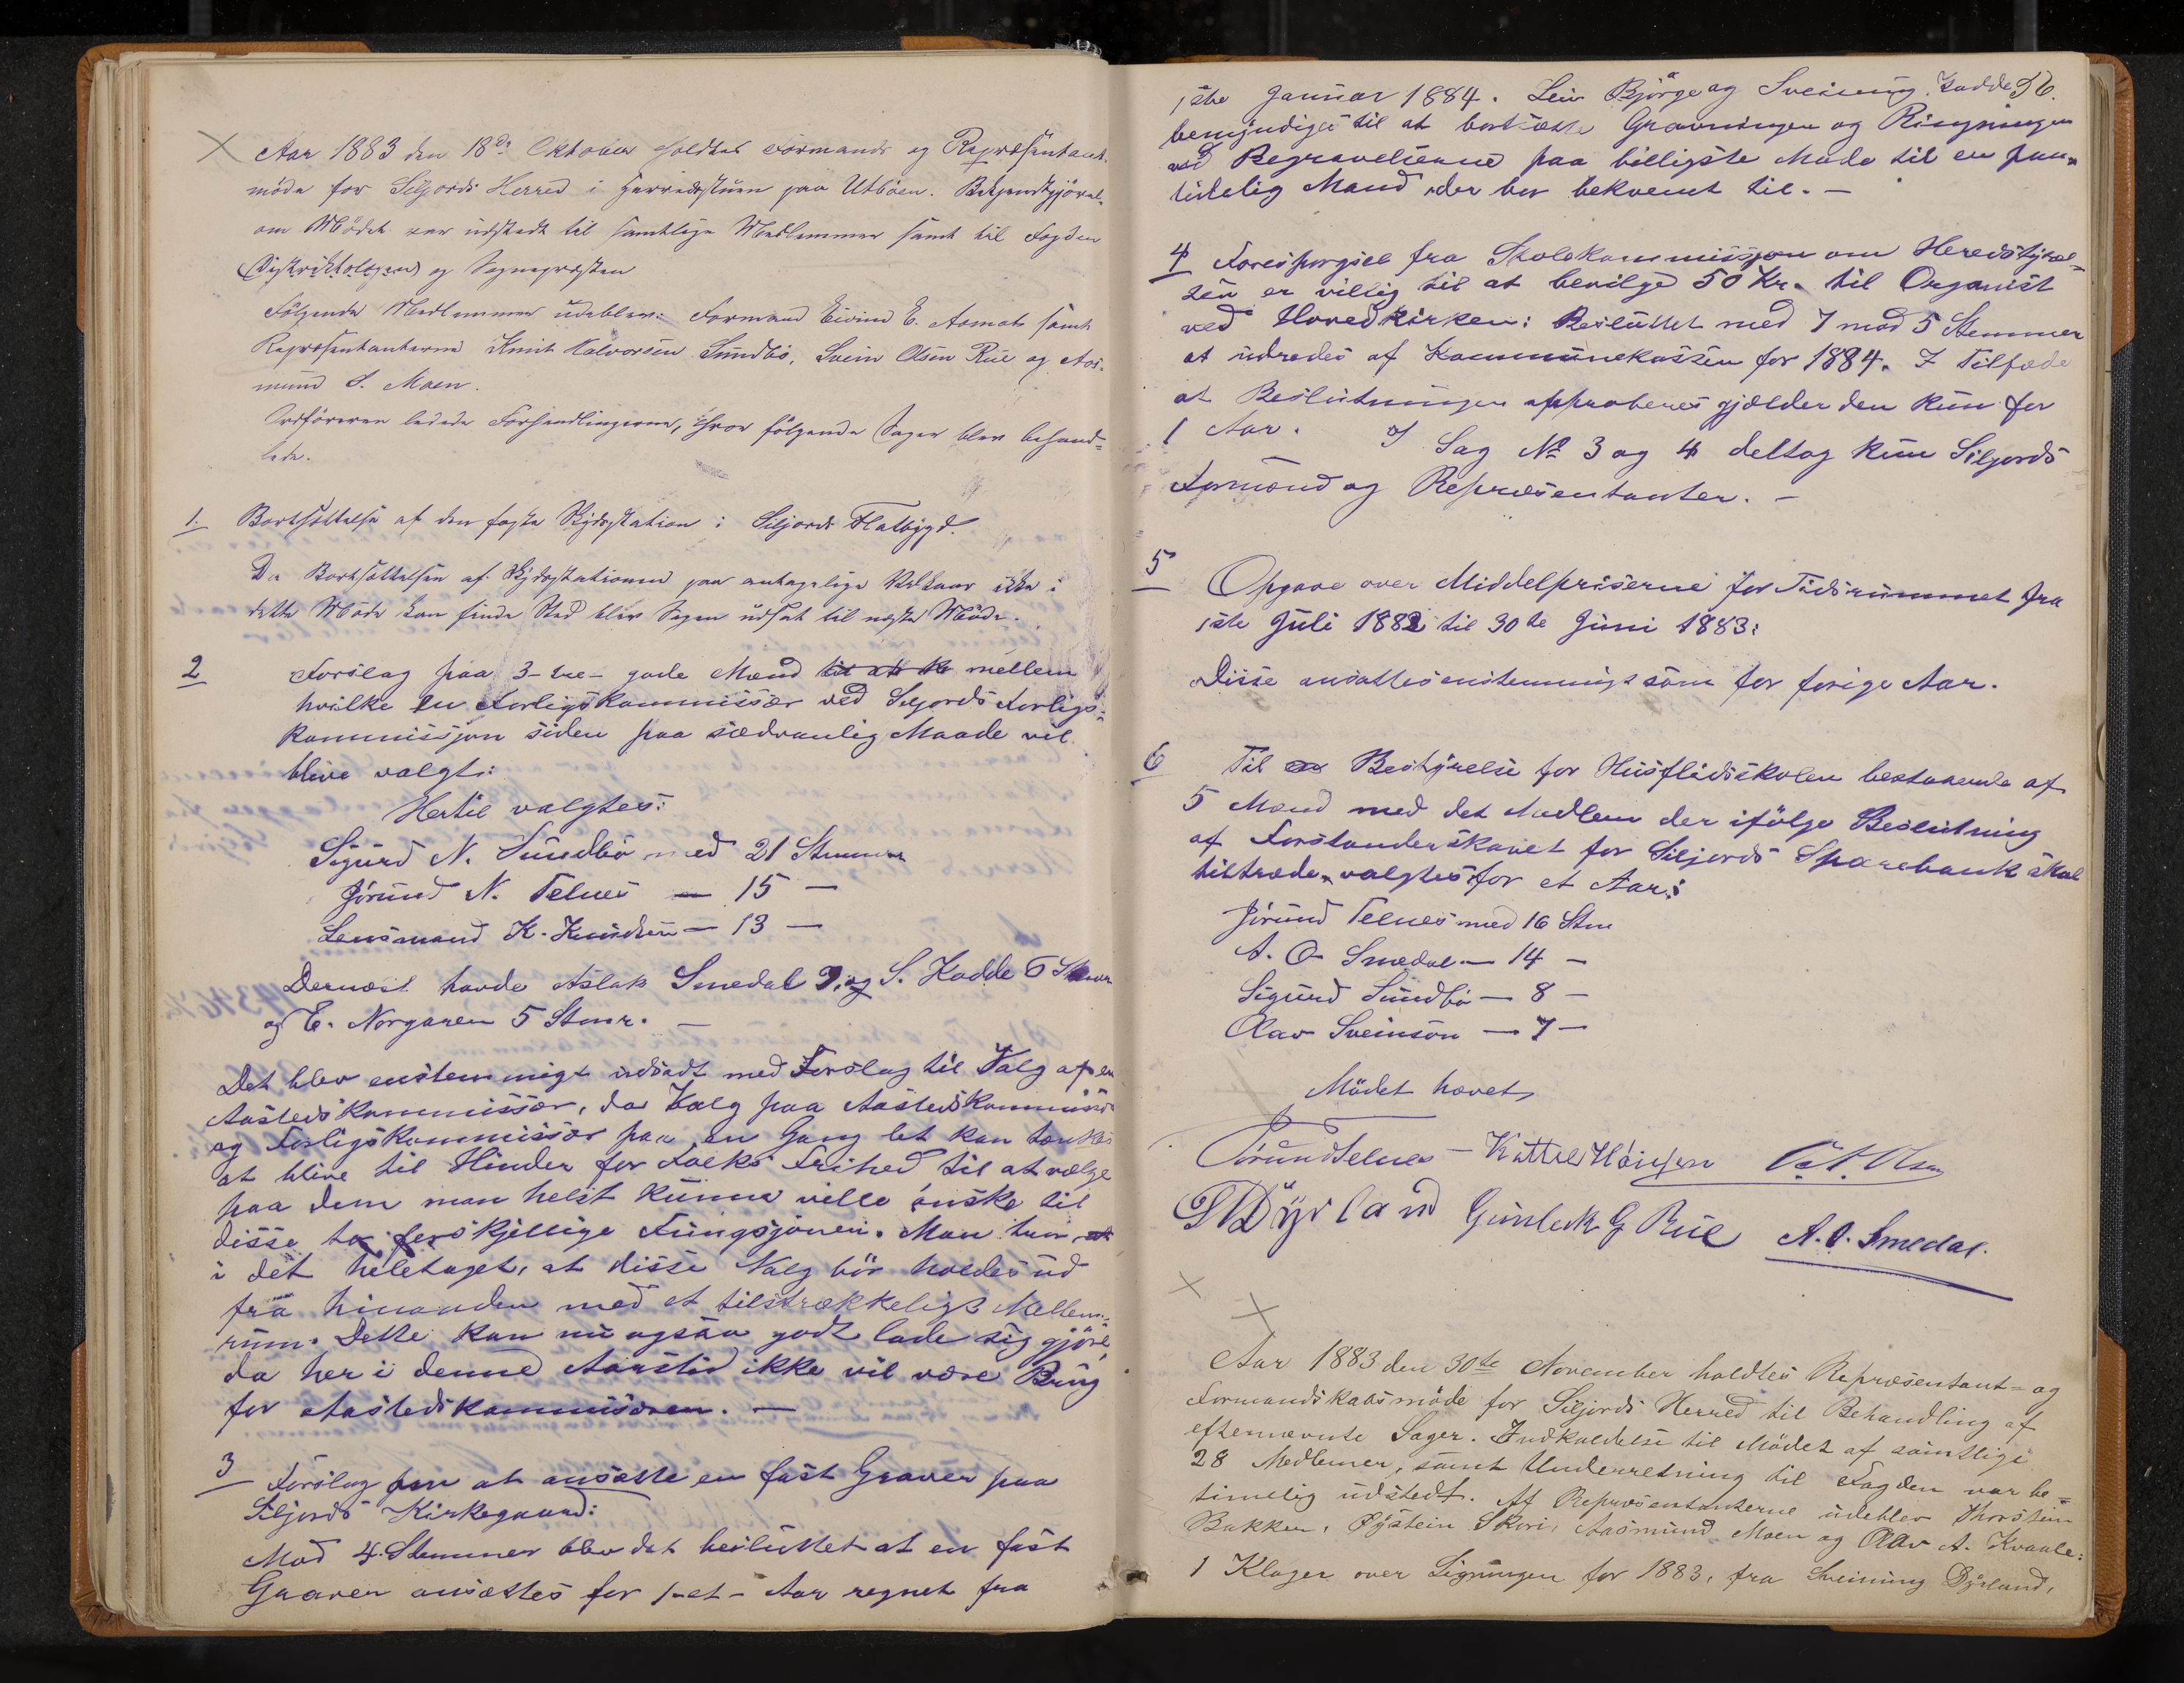 Aar 1883 den 18de Oktober holdtes Formands og Repræsentant-
möde for Siljords Herred i Herredsstuen paa Utböen. Bekjendtgjörel-
om Mödet var udstedt til samtlige Medlemmer samt til Fogden
(Distriktslægen) og Sognepresten
Fölgende Medlemmer udeblev: Formand Eivind E. Aamot samt
Repræsentanterne Knut Halvorsen Sundbö, Svein Olsen Rue og Aas-
mund S. Moen.
Ordföreren ledede Forhandlingerne, hvor fölgende Sager blev behand-
lede.
1. Bortsættelse af den faste Skydsstation i Siljords Flatbygd.
Da Bortsættelsen af Skydsstationen paa antagelige Vilkaar ikke i
dette Möde kan finde Sted blev Sagen udsat til næste Möde.
2 Forslag paa 3-tre- gode Mænd til at mellem
hvilke en Forligskommissær ved Seljords Forligs-
kommissjon siden paa sædvanlig Maade vil
blive valgt:
Hertil valgtes:
Sigurd N. Sundbö med 21 Stemmer
Jörund N. Telnes — 15 —
Lensmand K. Knudsen — 13 —
Dernæst havde Aslak Smedal 9, og S. Kadde 6 Stemr
og E. Norgaren 5 Stmr. —
Det blev enstemmigt udsadt med Forslag til Valg af en
Aastedskommissær, da Valg paa Aastedskommissær
og Forligskommissær paa en Gang let kan tænkes
at blive til Hinder for Folks Frihed til at vælge
paa dem man helst kunne ville önske til
disse to forskjellige Fungsjoner. Man tror
i det heletaget, at disse Valg bör holdes ud
fra hinanden med et tilstrækkeligt Mellem-
rum. Dette kan nu ogsaa godt lade sig gjöre,
da her i denne Aarstid ikke vil være Brug
for Aastedskommissæren. —
3 Forslag om at ansætte en fast Graver paa
Siljords Kirkegaard:
Mod 4 Stemmer blev det besluttet at en fast
Graver ansættes for 1-et- Aar regnet fra
1ste Januar 1884. Leiv Bjørge og Sveinung Kadde 56.
bemyndiges til at bortsætte Gravningen og Ringningen
ved Begravelserne paa billigste Maade til en paa-
lidelig Mand, der bor bekvemt til. —
4 Forespørgsel fra Skolekommissjon om Heredstyrel-
sen er villig til at bevilge 50 Kr. til Organist
ved Hovedkirken: Besluttet med 7 mod 5 Stemmer
at udredes af Kommunekassen for 1884. I Tilfælde
at Beslutningen approberes gjælder den kun for
1 Aar. I Sag No 3 og 4 deltog kun Siljords
Formænd og Repræsentanter. —
5 Opgave over Middelpriserne for Tidsrummet fra
1ste Juli 1882 til 30te Juni 1883:
Disse ansattes enstemmigt som for forige Aar.
6 Til Bestyrelse for Husflidsskolen bestaaende af
5 Mænd med det Medlem der ifölge Beslutning
af Forstanderskapet for Siljords Sparebank skal
tiltræde, valgtes for et Aar:
Jörund Telnes med 16 Stm
A. O. Smedal — 14 —
Sigurd Sundbö — 8 —
Olav Sveinson — 7 —
Mödet hævet
Jörund Telnes — Kittel Olsen
Dyrland Gunleik G Rue A. O. Smedal.
Aar 1883 den 30te November holdtes Repræsentant- og
Formandskabsmöde for Siljords Herred til Behandling af
eftermævnte Sager. Indkaldelse til Mödet af samtlige
28 Medlemer, samt Underretning til Fogden var be-
timelig udstedt. Af Repræsentanterne udeblev Thorstein
Bakken, Øystein Skori, Aasmund Moen og Olav A. Kvaale:
1 Klager over Ligningen for 1883, fra Sveinung Dyrland,